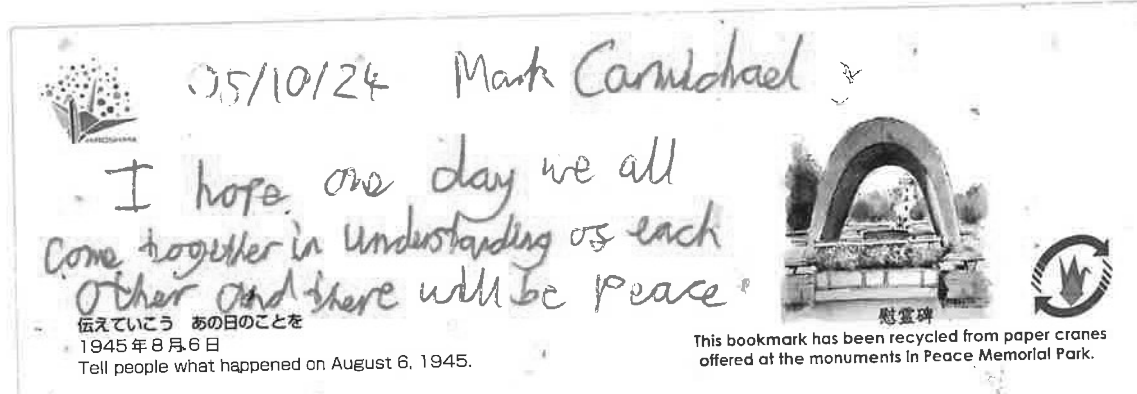 05/10/24 Mark Carmichael
I hope one day we all
come together in understanding of each
other and there will be peace
伝えていこう あの日のことを
1945年8月6日
Tell people what happened on August 6, 1945.
慰霊碑
This bookmark has been recycled from paper cranes
offered at the monuments in Peace Memorial Park.
HIROSHIMA